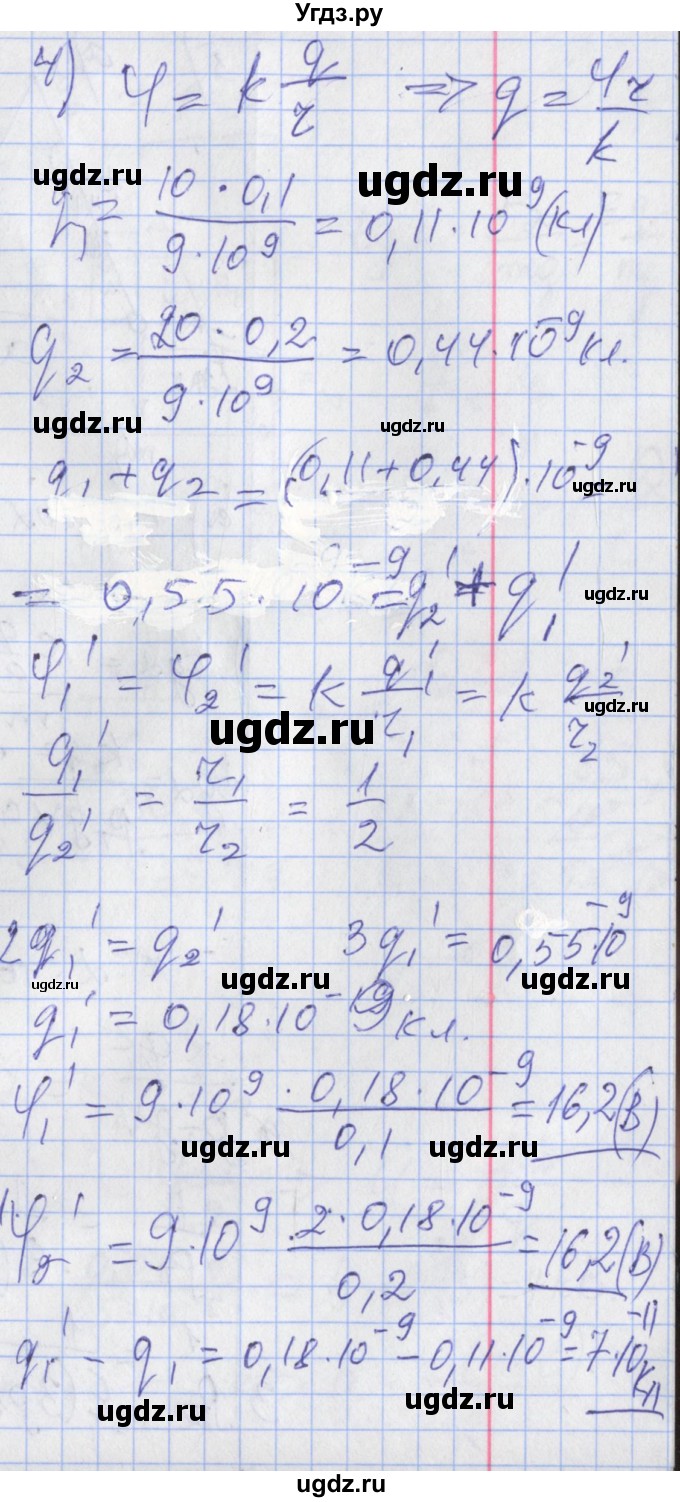 Угдз.ру
4) φ = k q/r => q = φr/k
ugdz.ru ugdz.ru
q₁ = 10 · 0,1 / 9·10⁹ = 0,11·10⁻⁹ (Кл)
q₂ = 20 · 0,2 / 9·10⁹ = 0,44·10⁻⁹ Кл.
ugdz.ru ugdz.ru
q₁ + q₂ = (0,11+0,44)·10⁻⁹
ugdz.ru
= 0,55·10⁻⁹ = q₂' + q₁'
ugdz.ru
φ₁' = φ₂' = k q₁'/r₁ = k q₂'/r₂
ugdz.ru ugdz.ru
q₁'/q₂' = r₁/r₂ = 1/2
2q₁' = q₂' 3q₁' = 0,55·10⁻⁹
ugdz.ru ugdz.ru ugdz.ru
q₁' = 0,18·10⁻⁹ Кл.
φ₁' = 9·10⁹ · 0,18·10⁻⁹ / 0,1 = 16,2 (В)
ugdz.ru ugdz.ru
φ₂' = 9·10⁹ · 2·0,18·10⁻⁹ / 0,2 = 16,2 (В)
q₁' - q₁ = 0,18·10⁻⁹ - 0,11·10⁻⁹ = 7·10⁻¹¹ Кл
ugdz.ru ugdz.ru
ugdz.ru